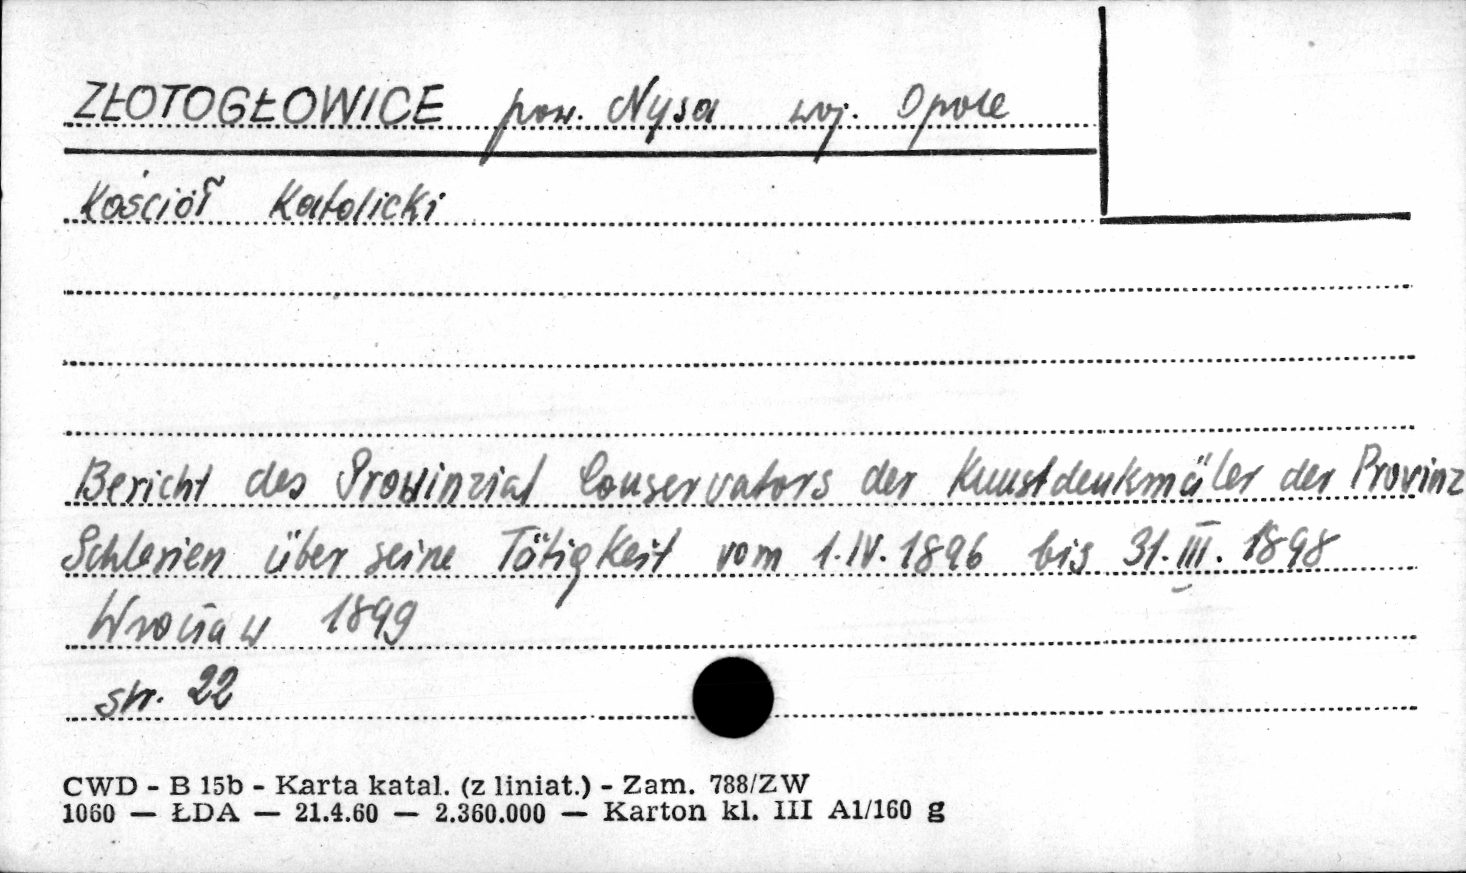 ZŁOTOGŁOWICE pow. Nysa woj. Opole
Kościół Katolicki
Bericht des Prowinzial Conservators der Kunstdenkmäler der Provinz
Schlesien über seine Tätigkeit vom 1.IV.1896 bis 31.III.1898
Wrocław 1899
str. 22
CWD - B 15b - Karta katal. (z liniat.) - Zam. 788/ZW
1060 — ŁDA — 21.4.60 — 2.360.000 — Karton kl. III A1/160 g